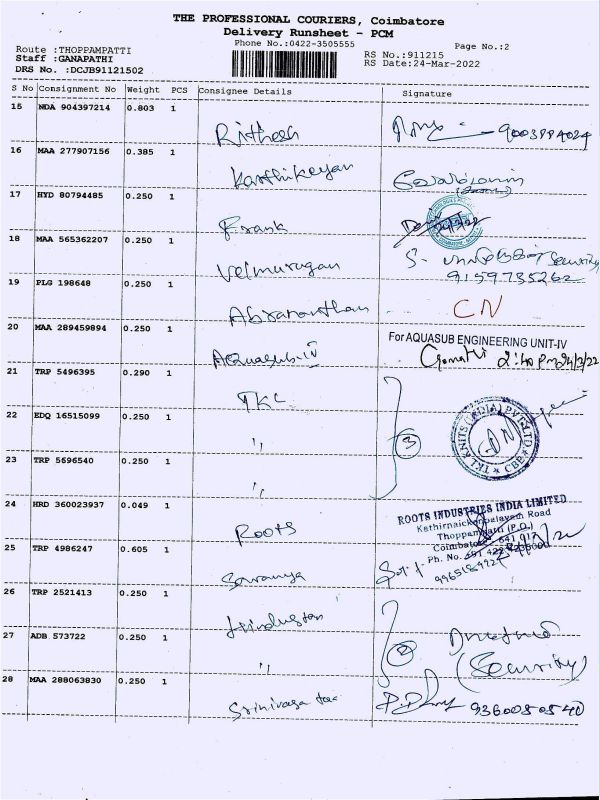 THE PROFESSIONAL COURIERS, Coimbatore
Delivery Runsheet - PCM
Phone No.:0422-3505555
Page No.:2
Route :THOPPAMPATTI
Staff :GANAPATHI
DRS No. :DCJB91121502
RS No.:911215
RS Date:24-Mar-2022
S No Consignment No Weight PCS Consignee Details Signature
15 NDA 904397214 0.803 1
Rithesh
16 MAA 277907156 0.385 1
Karthikeyan
17 HYD 80794485 0.250 1
Frank
18 MAA 565362207 0.250 1
Velmurugan
S. Security
9159735262
19 PLG 198648 0.250 1
CN
20 MAA 289459894 0.250 1
Aquasub-IV
For AQUASUB ENGINEERING UNIT-IV
Gomathi 2:40 Pm 24/3/22
21 TRP 5496395 0.290 1
TKL
22 EDQ 16515099 0.250 1
"
3
TKL KNITS (INDIA) PVT LTD CBE
23 TRP 5696540 0.250 1
"
24 HRD 360023937 0.049 1
Roots
ROOTS INDUSTRIES INDIA LIMITED
Kathirnaickenpalayam Road
Thoppampatti (P.O.)
Coimbatore 641 017
Ph. No.
25 TRP 4986247 0.605 1
Saranya
26 TRP 2521413 0.250 1
Hindustan
27 ADB 573722 0.250 1
"
2
(Security)
28 MAA 288063830 0.250 1
9360050540